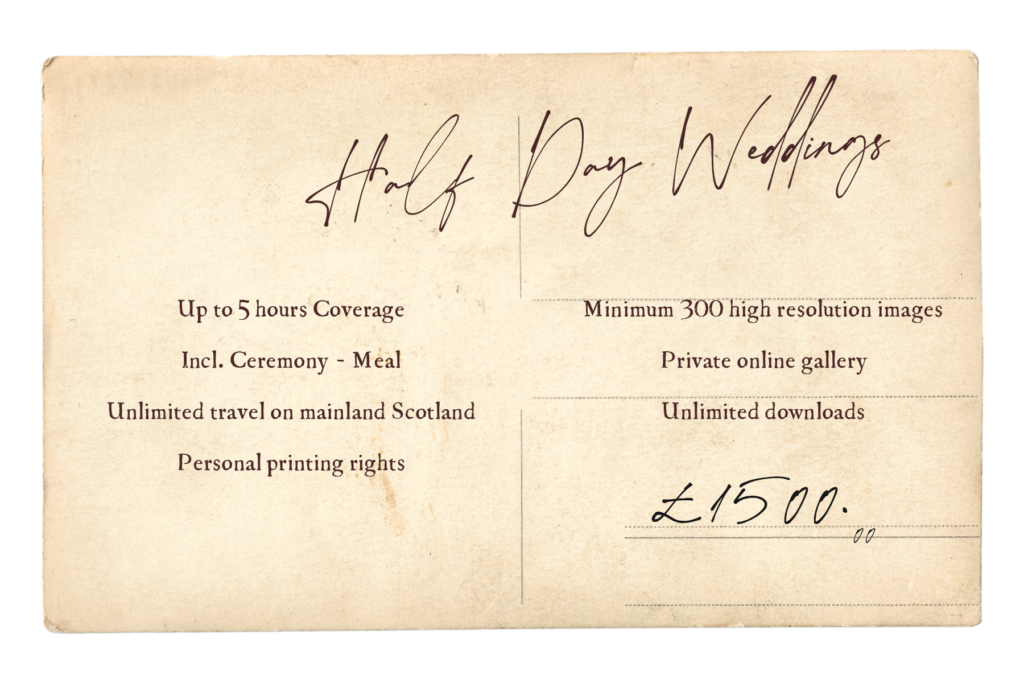 Half Day Weddings
Up to 5 hours Coverage
Incl. Ceremony - Meal
Unlimited travel on mainland Scotland
Personal printing rights
Minimum 300 high resolution images
Private online gallery
Unlimited downloads
£1500.00